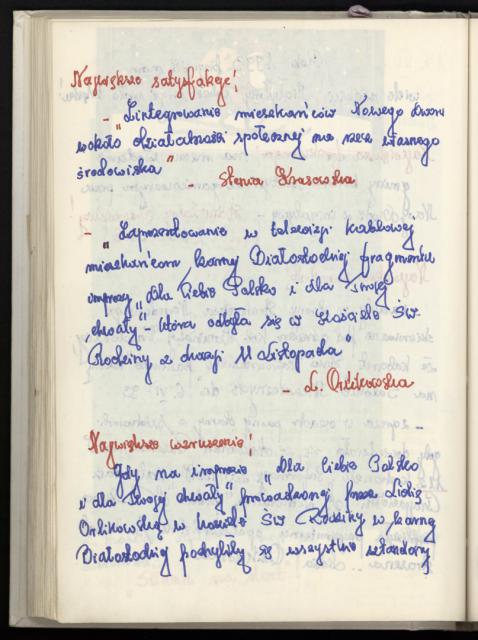 Największe satysfakcje!
- "Zintegrowanie mieszkańców Nowego Dworu
wokoło działalności społecznej na rzecz własnego
środowiska"
- Sława Krasowska
- "Zaprezentowanie w telewizji kablowej
mieszkańcom Czarnej Białostockiej fragmentu
imprezy "Dla Ciebie Polsko i dla Twojej
chwały" - która odbyła się w kościele Św.
Rodziny z okazji 11 Listopada"
- L. Orlikowska
Największe wzruszenie!
Gdy na imprezie "Dla Ciebie Polsko
i dla Twojej chwały" prowadzonej przez Lidię
Orlikowską w kościele Św Rodziny w Czarnej
Białostockiej pochyliły się wszystkie sztandary